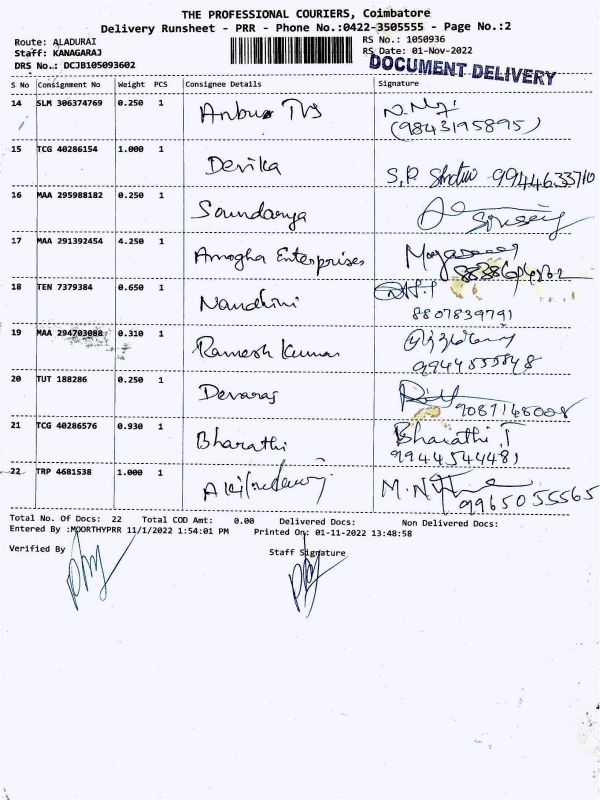 THE PROFESSIONAL COURIERS, Coimbatore
Delivery Runsheet - PRR - Phone No.:0422-3505555 - Page No.:2
Route: ALADURAI
RS No.: 1050936
Staff: KANAGARAJ
RS Date: 01-Nov-2022
DRS No.: DCJB105093602
DOCUMENT DELIVERY
S No Consignment No Weight PCS Consignee Details Signature
14 SLM 306374769 0.250 1 Anbus TVS
(9843195895)
15 TCG 40286154 1.000 1 Devika S.P 9944633710
16 MAA 295988182 0.250 1 Soundarya
17 MAA 291392454 4.250 1 Amogha Enterprises
18 TEN 7379384 0.650 1 Nandhini
8807839791
19 MAA 294703088 0.310 1 Ramesh Kumar
9944555848
20 TUT 188286 0.250 1 Devaraj
9087148008
21 TCG 40286576 0.930 1 Bharathi Bharathi.T
9944544481
22 TRP 4681538 1.000 1 M.N
9965055565
Total No. Of Docs: 22 Total COD Amt: 0.00 Delivered Docs: Non Delivered Docs:
Entered By :MOORTHYPRR 11/1/2022 1:54:01 PM Printed On: 01-11-2022 13:48:58
Verified By Staff Signature